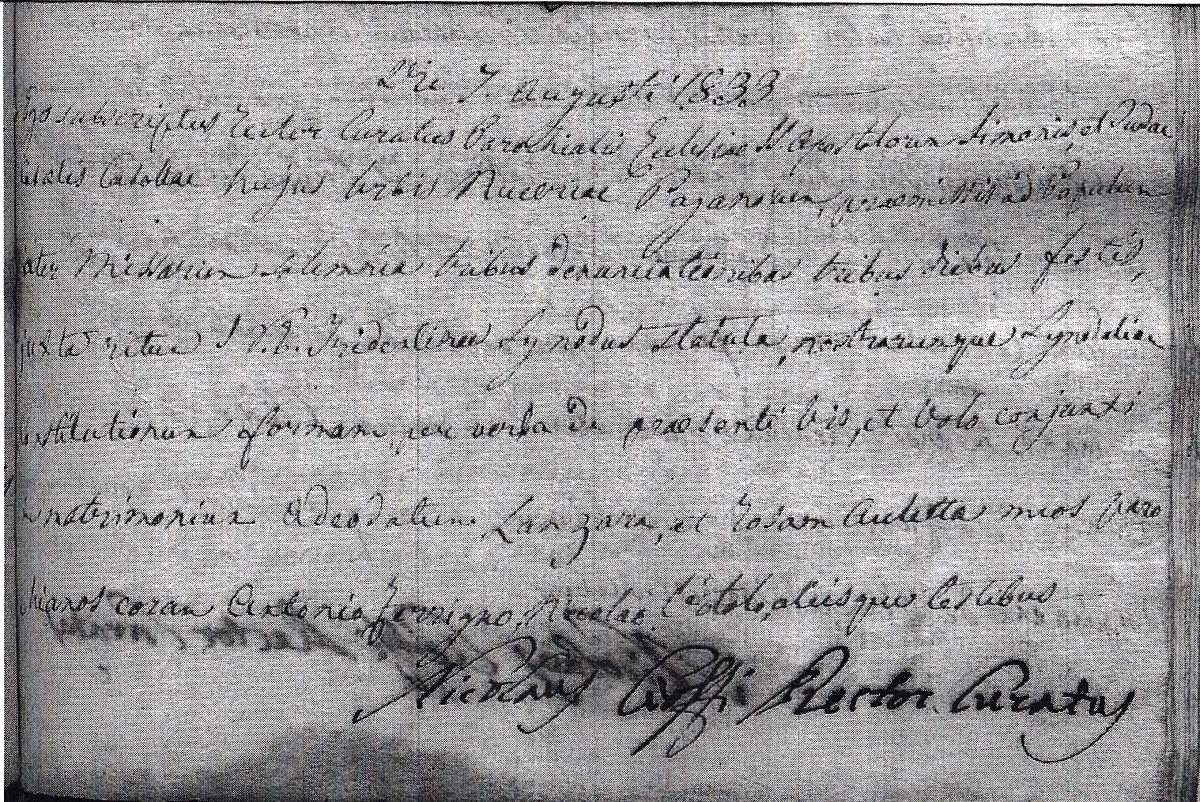 Die 7 Augusti 1833
Ego subscriptus Rector Curatus Parochialis Ecclesiae SS Apostolorum Simonis, et Judae
Casalis hujus Urbis Nuceriae Paganorum, praemissis ad Populum
inter Missarum solemnia tribus denunciationibus tribus diebus festis,
juxta ritum Tridentinae Synodus statuta, nostrarumque Synodalium
Constitutionum formam, per verba de praesenti Vis, et Volo conjunxi
in matrimonium Adeodatum Lanzara, et Rosam Auletta meos paro
chianos coram Antonio Ferrigno, Nicolao aliisque testibus
Nicolaus Rector Curatus